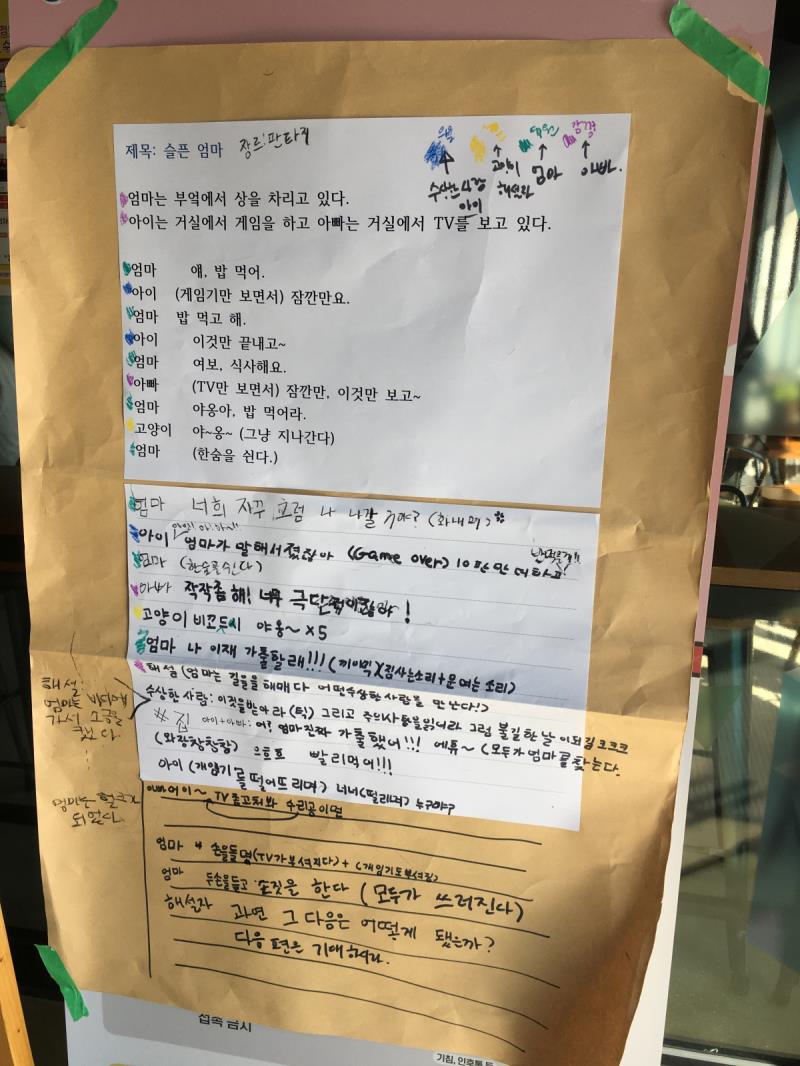 제목: 슬픈 엄마 장르: 판타지
수상한 사람 아이
고양이 해설자
엄마
아빠.
엄마는 부엌에서 상을 차리고 있다.
아이는 거실에서 게임을 하고 아빠는 거실에서 TV를 보고 있다.
엄마 얘, 밥 먹어.
아이 (게임기만 보면서) 잠깐만요.
엄마 밥 먹고 해.
아이 이것만 끝내고~
엄마 여보, 식사해요.
아빠 (TV만 보면서) 잠깐만, 이것만 보고~
엄마 야옹아, 밥 먹어라.
고양이 야~옹~ (그냥 지나간다)
엄마 (한숨을 쉰다.)
엄마 너희 자꾸 그럼 나 나갈 거야? (화내며)
아이 엄마가 말해서 졌잖아 (Game over) 10판만 더하고
엄마 (한숨을 쉰다)
아빠 작작좀 해! 너무 !
고양이 비꼬듯이 야옹~ x5
엄마 나 이재 가출할래!!! (끼이익)(짐싸는소리+문여는소리)
해설 (엄마는 길을을 해매다 어떤수상한사람을 만난다!)
수상한 사람: 이것을받아라 (턱) 그리고 주의사항을읽어라 그럼 불길한 날이되길 코코코
집 아이+아빠: 어? 엄마진짜 가출했어!!! 에휴~ (모두가 엄마를 찾는다.
(와장창창창) 으흐흐 빨리먹어!!!
아이 (개임기를 떨어뜨리며) 너너 (떨리며) 누구야?
해설:
엄마는 바다에
가서
엄마는 헐크가
되었다.
TV좀고쳐봐 수리공이면
엄마 손을돌명(TV가부셔진다)+(개임기도부셔짐)
엄마 두손을들고 손짓을 한다 (모두가 쓰러진다)
해설자 과연 그 다음은 어떻게 됐는까?
다음 편은 기대하시라.
접속 금지
기침, 인후통 등